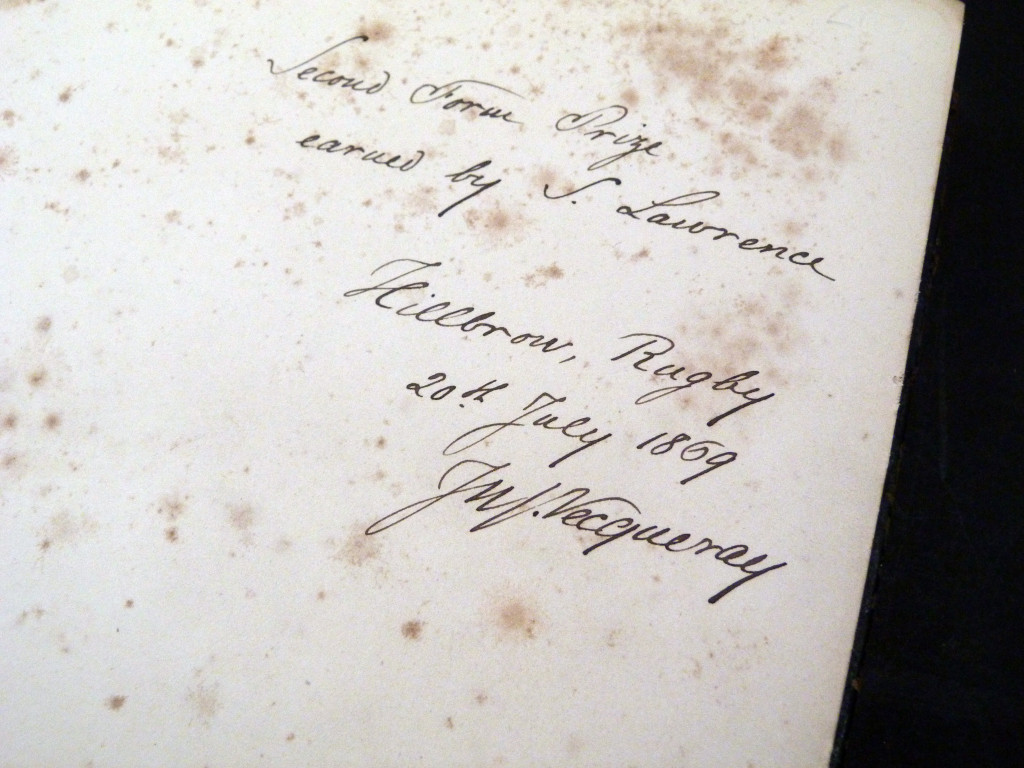 Second Form Prize
earned by S. Lawrence
Hillbrow, Rugby
20.th July 1869
JWJ. Vecqueray